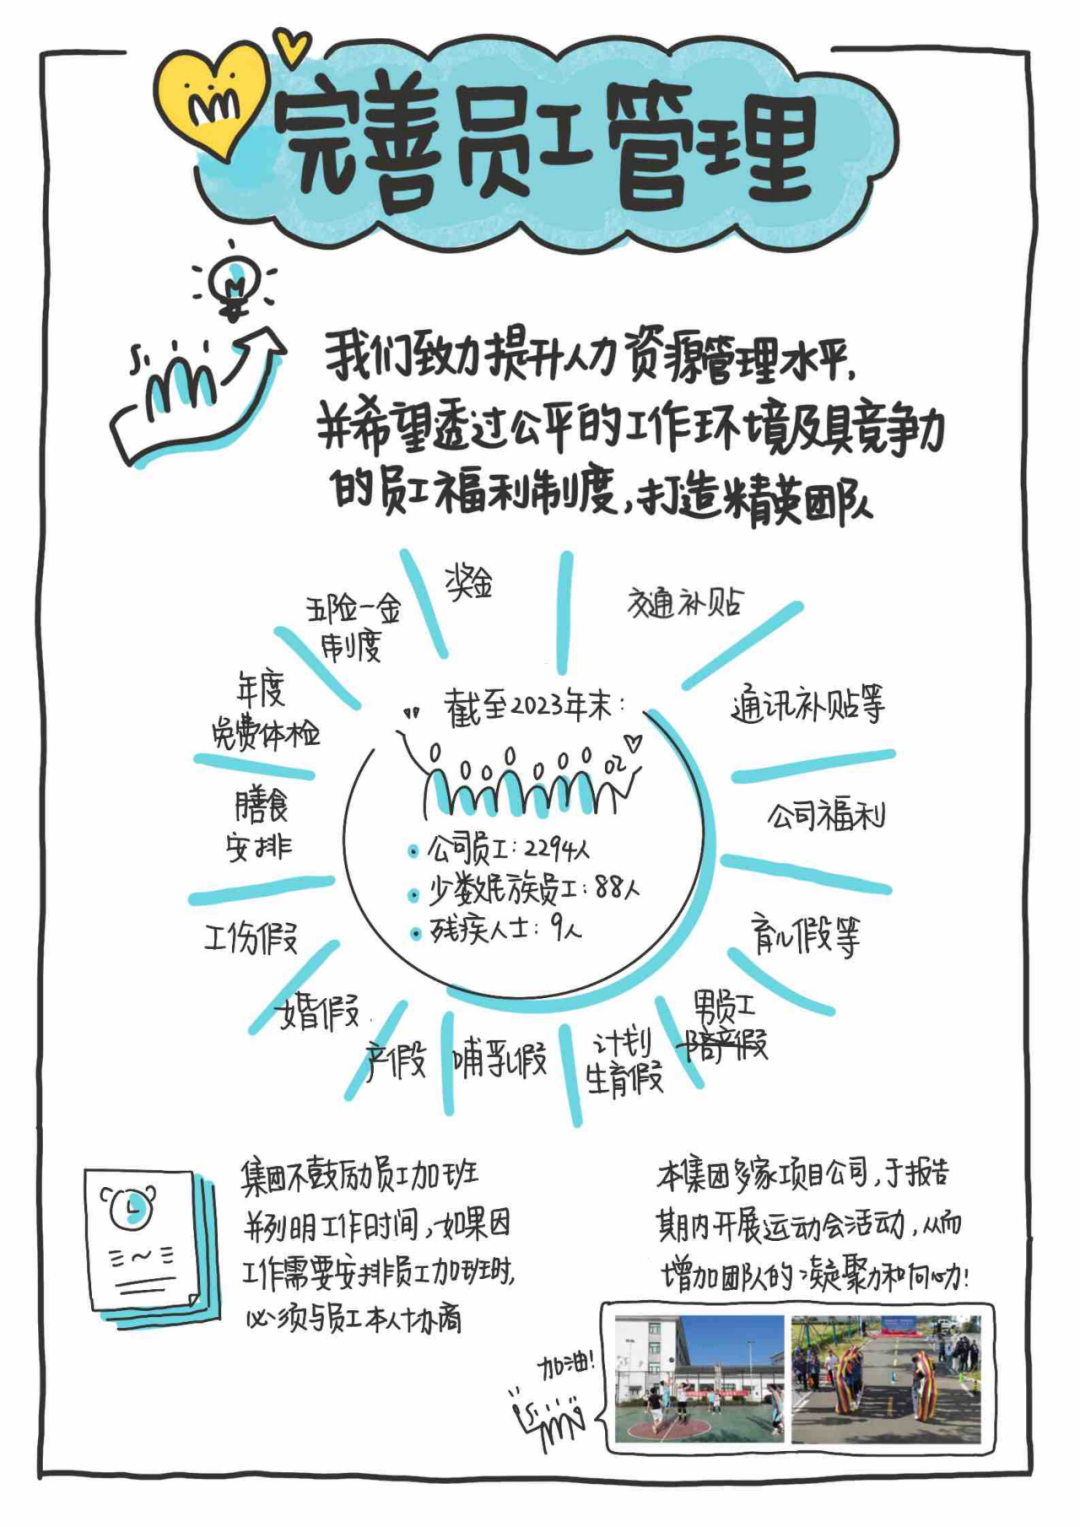 完善员工管理
我们致力提升人力资源管理水平,
并希望透过公平的工作环境及具竞争力
的员工福利制度,打造精英团队
奖金
五险一金
制度
交通补贴
年度
免费体检
通讯补贴等
膳食
安排
公司福利
工伤假
育儿假等
婚假
男员工
陪产假
产假
哺乳假
计划
生育假
截至2023年末:
公司员工:2294人
少数民族员工:88人
残疾人士:9人
集团不鼓励员工加班
并列明工作时间,如果因
工作需要安排员工加班时,
必须与员工本人协商
本集团多家项目公司,于报告
期内开展运动会活动,从而
增加团队的凝聚力和向心力!
加油!